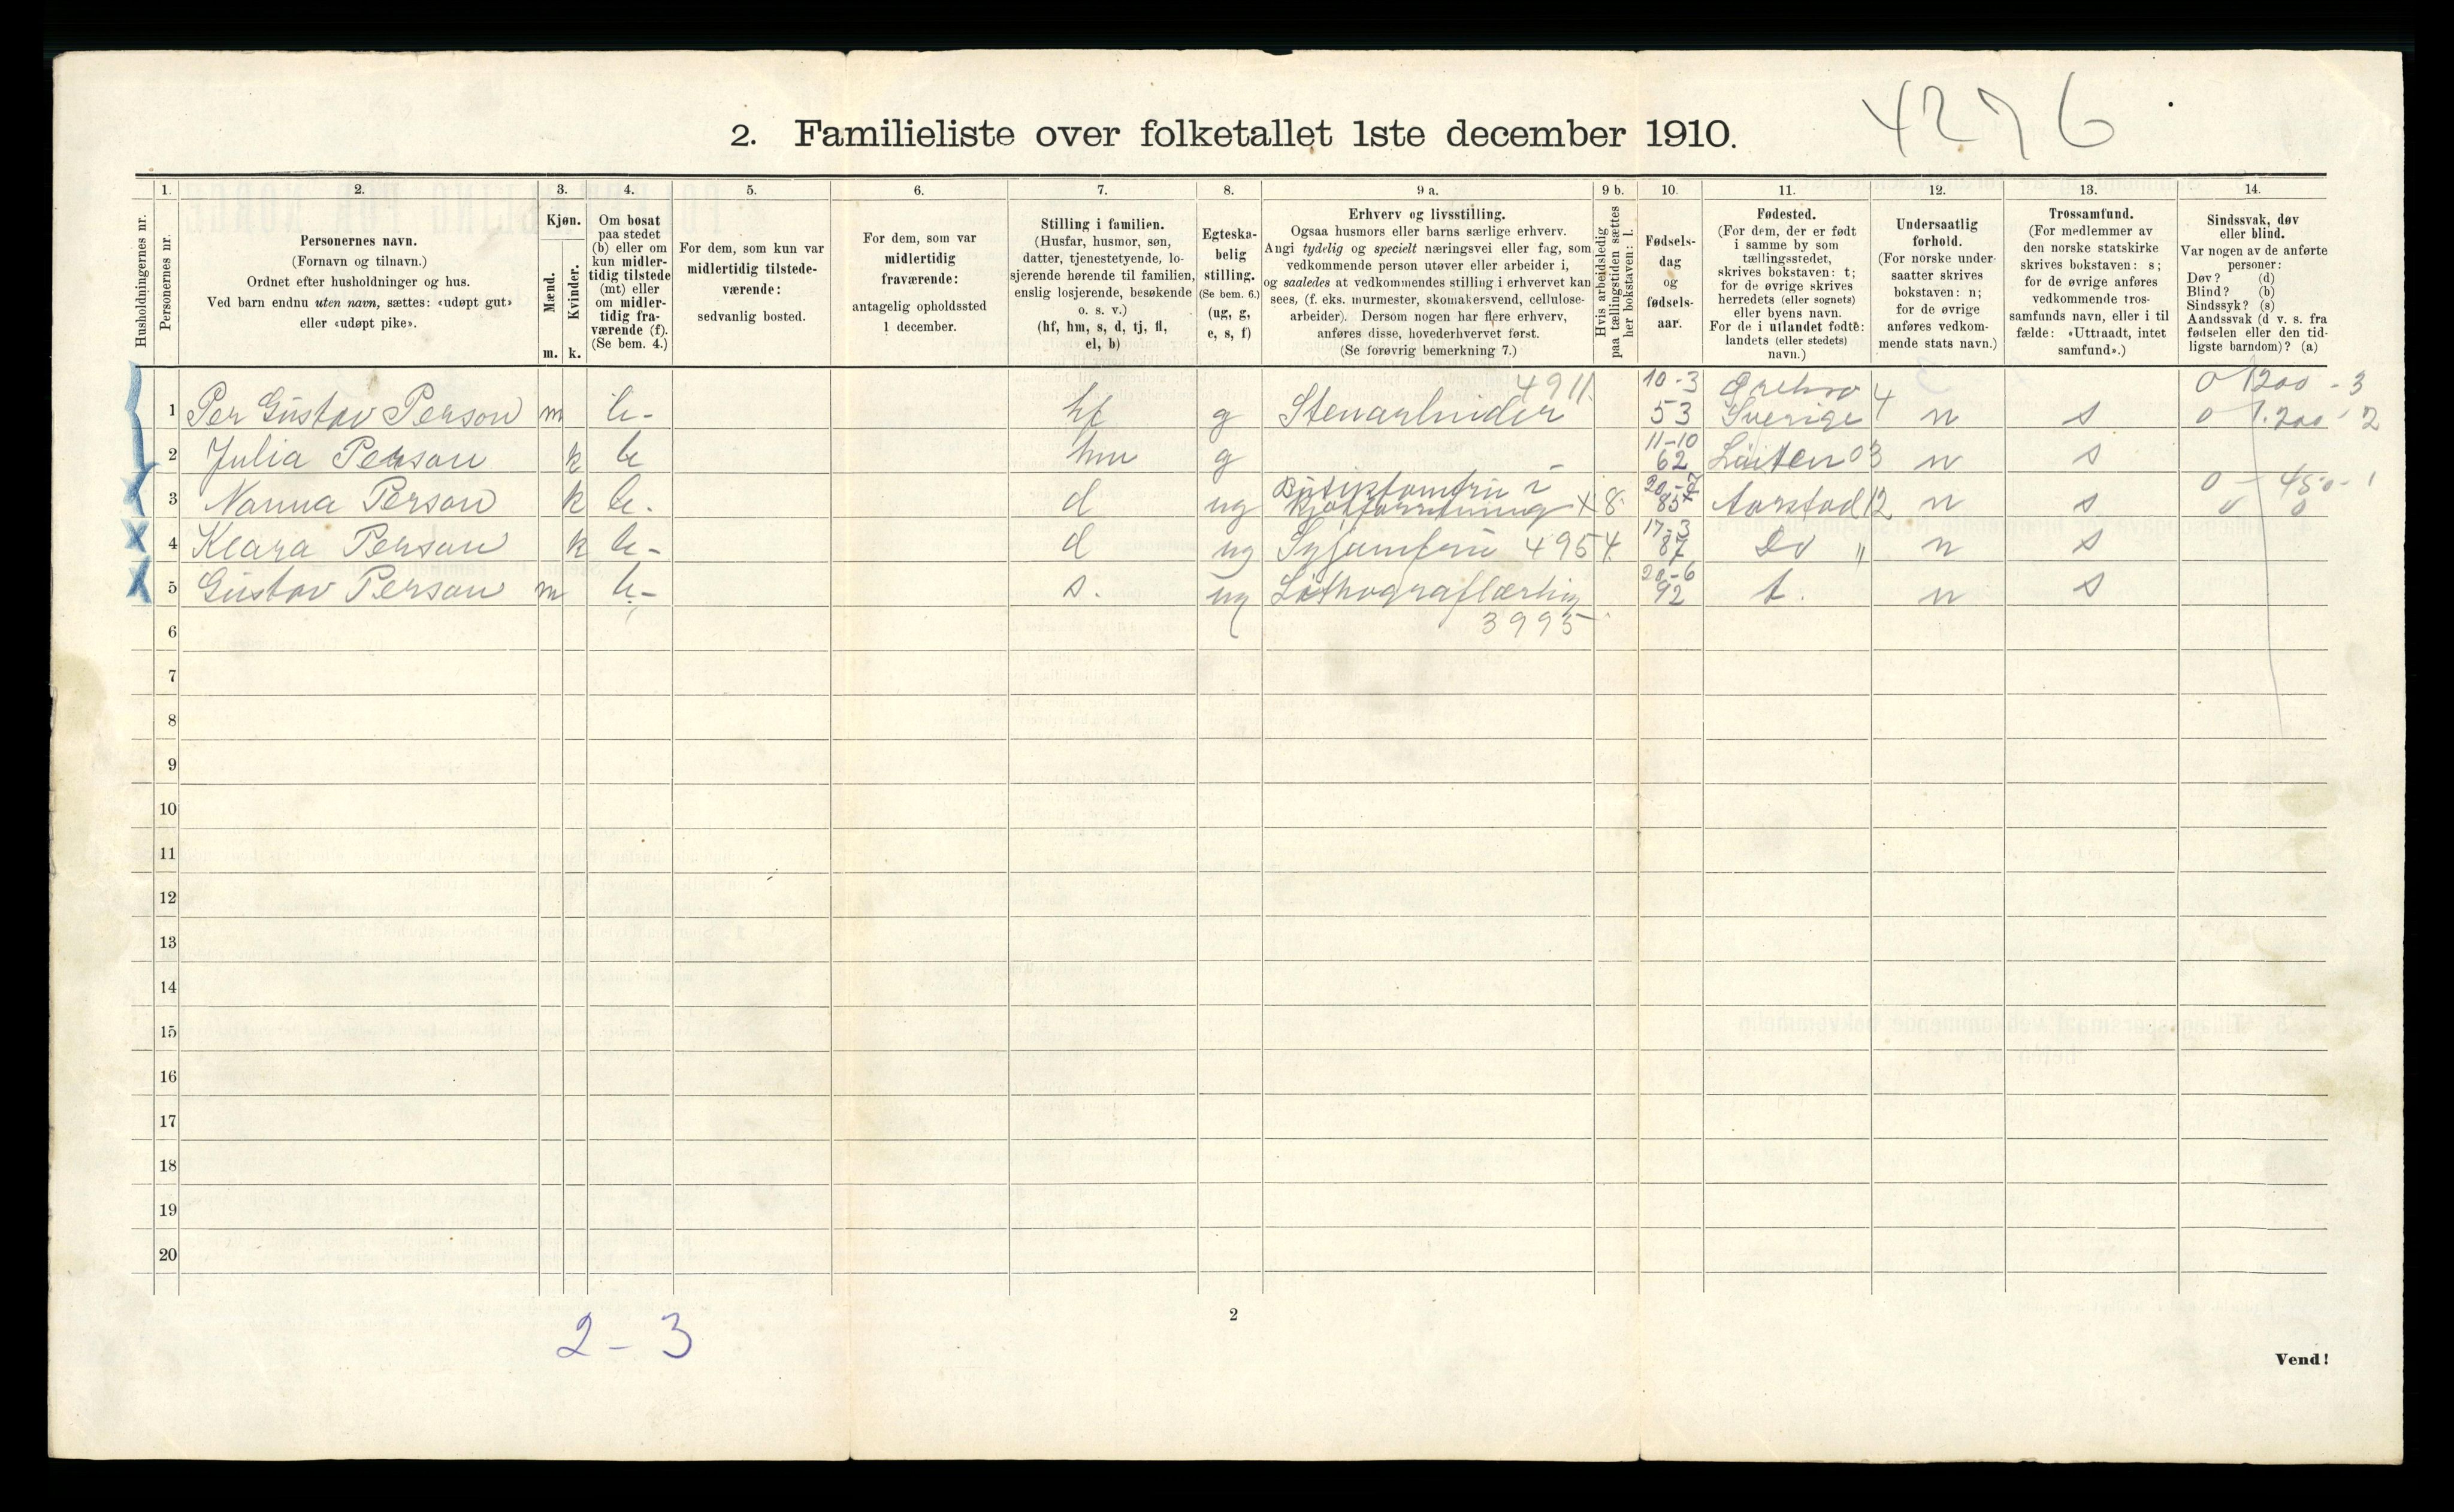 4276
2. Familieliste over folketallet 1ste december 1910.
1. 2. 3. 4. 5. 6. 7. 8. 9 a. 9 b. 10. 11. 12. 13. 14.
Husholdningernes nr.
Personernes nr.
Personernes navn.
(Fornavn og tilnavn.)
Ordnet efter husholdninger og hus.
Ved barn endnu uten navn, sættes: «udøpt gut»
eller «udøpt pike».
Kjøn.
Mænd.
Kvinder.
m. k.
Om bosat
paa stedet
(b) eller om
kun midler-
tidig tilstede
(mt) eller
om midler-
tidig fra-
værende (f).
(Se bem. 4.)
For dem, som kun var
midlertidig tilstede-
værende:
sedvanlig bosted.
For dem, som var
midlertidig
fraværende:
antagelig opholdssted
1 december.
Stilling i familien.
(Husfar, husmor, søn,
datter, tjenestetyende, lo-
sjerende hørende til familien,
enslig losjerende, besøkende
o. s. v.)
(hf, hm, s, d, tj, fl,
el, b)
Egteska-
belig
stilling.
(Se bem. 6.)
(ug, g,
e, s, f)
Erhverv og livsstilling.
Ogsaa husmors eller barns særlige erhverv.
Angi tydelig og specielt næringsvei eller fag, som
vedkommende person utøver eller arbeider i,
og saaledes at vedkommendes stilling i erhvervet kan
sees, (f. eks. murmester, skomakersvend, cellulose-
arbeider). Dersom nogen har flere erhverv,
anføres disse, hovederhvervet først.
(Se forøvrig bemerkning 7.)
Hvis arbeidsledig
paa tællingstiden sættes
her bokstaven: l.
Fødsels-
dag
og
fødsels-
aar.
Fødested.
(For dem, der er født
i samme by som
tællingsstedet,
skrives bokstaven: t;
for de øvrige skrives
herredets (eller sognets)
eller byens navn.
For de i utlandet fødte:
landets (eller stedets)
navn.)
Undersaatlig
forhold.
(For norske under-
saatter skrives
bokstaven: n;
for de øvrige
anføres vedkom-
mende stats navn.)
Trossamfund.
(For medlemmer av
den norske statskirke
skrives bokstaven: s;
for de øvrige anføres
vedkommende tros-
samfunds navn, eller i til
fælde: «Uttraadt, intet
samfund».)
Sindssvak, døv
eller blind.
Var nogen av de anførte
personer:
Døv? (d)
Blind? (b)
Sindssyk? (s)
Aandssvak (d v. s. fra
fødselen eller den tid-
ligste barndom)? (a)
4911 10-3 0 1200 - 3
1 Per Gustav Person m b- hf g Stenarbeider 53 Sverige 4 n s 0 1.200 - 2
11-10
2 Julia Person k b hm g - 62 Løiten 03 n s
0 - 450 - 1
3 Nanna Person k b. d ug 85 Aarstad 12 n s
17-3
4 Klara Person k b- d ug Syjomfru 4954. 87 Do " n s
20-6
5 Gustav Person m b- s. ug Lithograflærling 92 t. n s
6 3995
7
8
9
10
11
12
13
14
15
16
17
18
19
20
2-3
2
Vend!